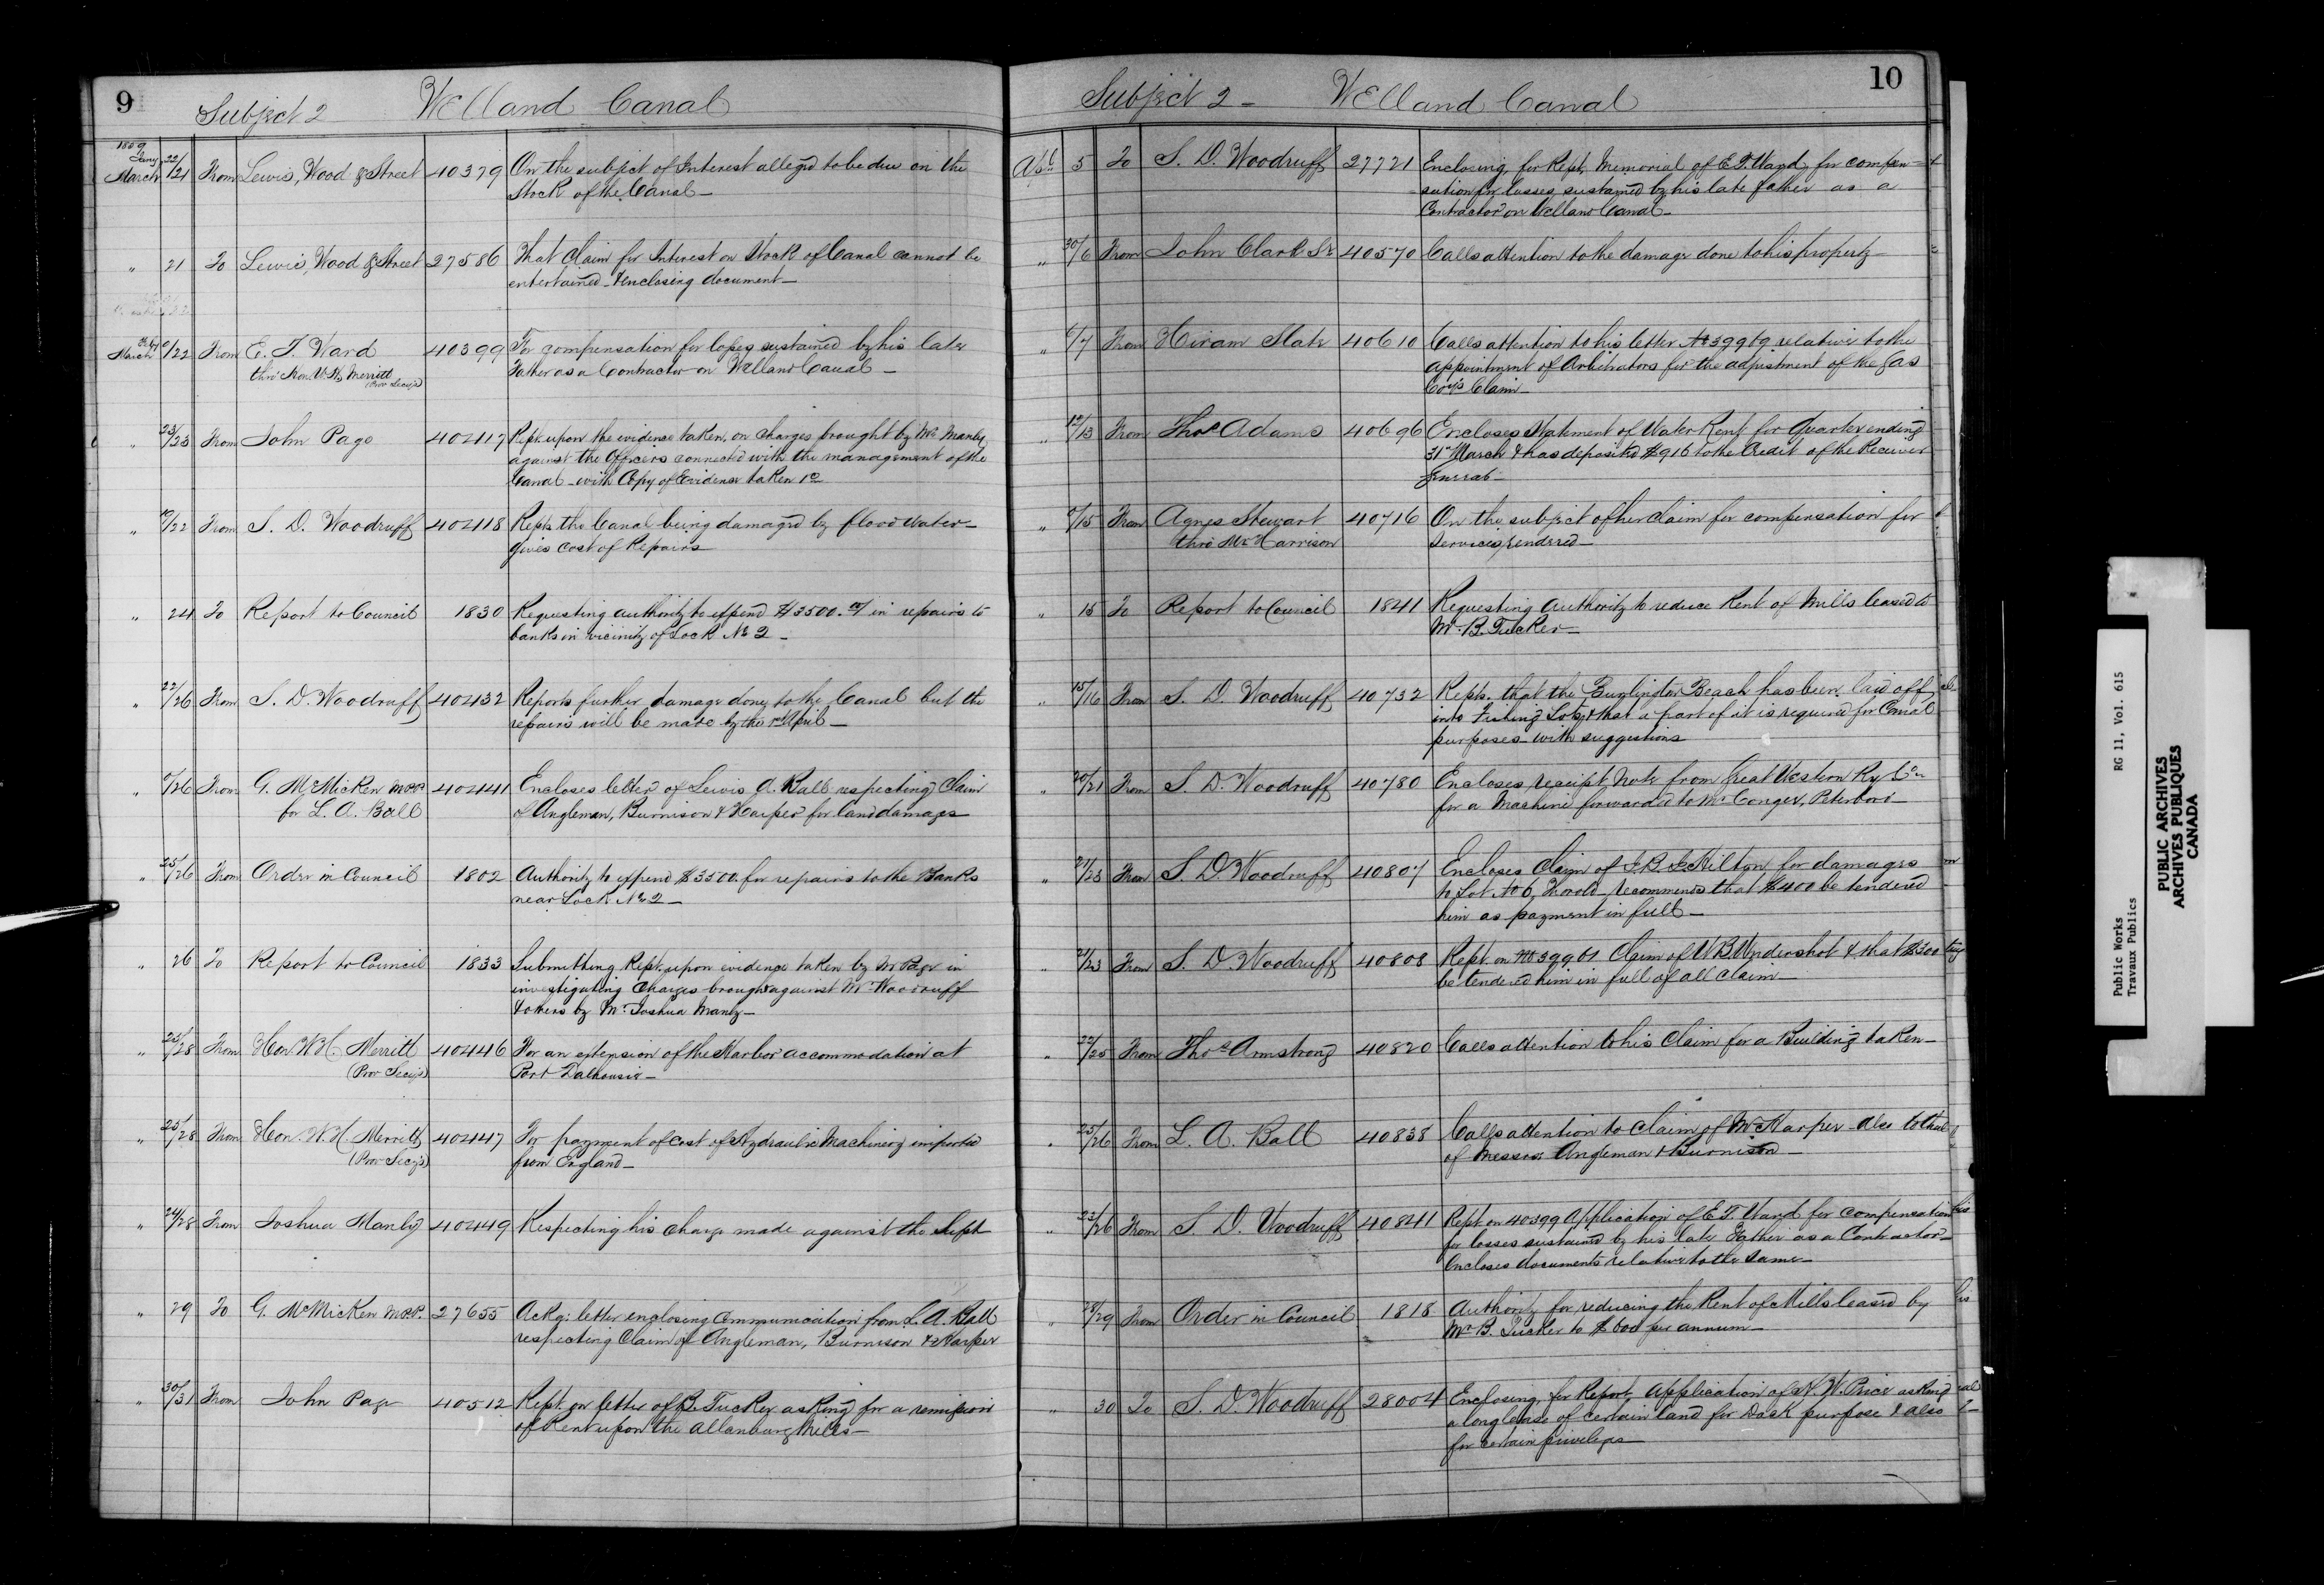 9
Subject 2 Welland Canal
1859
Jany 22
March /21 From Lewis, Wood & Street 40379 On the subject of Interest alleged to be due on the
Stock of the Canal—
" 21 To Lewis, Wood & Street 27586 That Claim for Interest on Stock of Canal cannot be
entertained—& enclosing document—
Feby
March /22 From E. T. Ward 40399 For compensation for losses sustained by his late
thro' Hon. W. H. Merritt Father as a Contractor on Welland Canal—
(Prov Secy's)
" 23/23 From John Page 40417 Rept. upon the evidence taken, on charges brought by Mr. Manly,
against the Officers connected with the management of the
Canal—with Copy of Evidence taken
" 19/22 From S. D. Woodruff 40418 Repts. the Canal being damaged by flood water—
gives cost of Repairs
" 24 To Report to Council 1830 Requesting authority to expend $3500. in repairs to
banks in vicinity of Lock No 2—
" 22/26 From S. D. Woodruff 40432 Reports further damage done to the Canal but the
repairs will be made by the 1st April—
" /26 From G. McMicken M.P.P. 40441 Encloses letter of Lewis A. Ball respecting Claim
for L. A. Ball of Angleman, Burnison & Harper for land damages
" 25/26 From Order in Council 1802 Authority to expend $3500. for repairs to the Banks
near Lock No 2—
" 26 To Report to Council 1833 Submitting Rept. upon evidence taken by Mr Page in
investigating Charges brought against Mr. Woodruff
& others by Mr. Joshua Manly—
" 25/28 From Hon. W. H. Merritt 40446 For an extension of the Harbor accommodation at
(Prov Secy's) Port Dalhousie—
" 25/28 From Hon. W. H. Merritt 40447 For payment of cost of Hydraulic Machinery imported
(Prov Secy's) from England—
" 24/28 From Joshua Manly 40449 Respecting his charge made against the Supt
" 29 To G. McMicken M.P.P. 27655 Ackg: letter enclosing Communication from L. A. Ball
respecting Claim of Angleman, Burnison & Harper
" 30/31 From John Page 40512 Rept. on letter of B. Tucker asking for a remission
of Rent upon the Allanburg Mills—
10
Subject 2— Welland Canal
Apl. 5 To S. D. Woodruff 27721 Enclosing, for Rept, Memorial of E. T. Ward, for compen-
sation for losses sustained by his late father as a
Contractor on Welland Canal—
" 30/6 From John Clark Sr 40570 Calls attention to the damage done to his property
" 6/7 From Hiram Slate 40610 Calls attention to his letter No 39969 relative to the
appointment of Arbitrators for the adjustment of the Gas
Coy's Claim—
" 12/13 From Thos. Adams 40696 Encloses Statement of Water Rent for Quarter ending
31st March & has deposited $916 to the Credit of the Receiver
General—
" /15 From Agnes Stewart 40716 On the subject of her claim for compensation for
thro' Mr Harrison Services rendered—
" 15 To Report to Council 1841 Requesting authority to reduce Rent of Mills leased to
Mr. B. Tucker—
" 15/16 From S. D. Woodruff 40732 Repts. that the Burlington Beach has been laid off
into Fishing Lots, & that a part of it is required for Canal
purposes—with suggestions
" 20/21 From S. D. Woodruff 40780 Encloses receipt Note from Great Western Ry Co.
for a Machine forwarded to Mr Conger, Peterboro'—
" 21/23 From S. D. Woodruff 40807 Encloses Claim of for damages
to Lot No 6, Thorold—recommends that $400 be tendered
him as payment in full—
" 21/23 From S. D. Woodruff 40808 Rept. on No 39961 Claim of W B Vndershot & that $300
be tendered him in full of all claim—
" 22/25 From Thos. Armstrong 40820 Calls attention to his Claim for a Building taken—
" 25/26 From L. A. Ball 40838 Calls attention to Claim of Mr Harper—Also to that
of Messrs. Angleman & Burnison—
" 23/26 From S. D. Woodruff 40841 Rept. on 40399 Application of E. T. Ward for compensation
for losses sustained by his late Father as a Contractor—
Encloses documents relative to the same—
" 28/29 From Order in Council 1818 Authority for reducing the Rent of Mills leased by
Mr. B. Tucker to $600 per annum—
" 30 To S. D. Woodruff 28004 Enclosing, for Report, Application of W. Price asking
a long lease of certain land for Dock purpose & also
for certain privileges—
Public Works RG 11, Vol. 615
Travaux Publics
PUBLIC ARCHIVES
ARCHIVES PUBLIQUES
CANADA